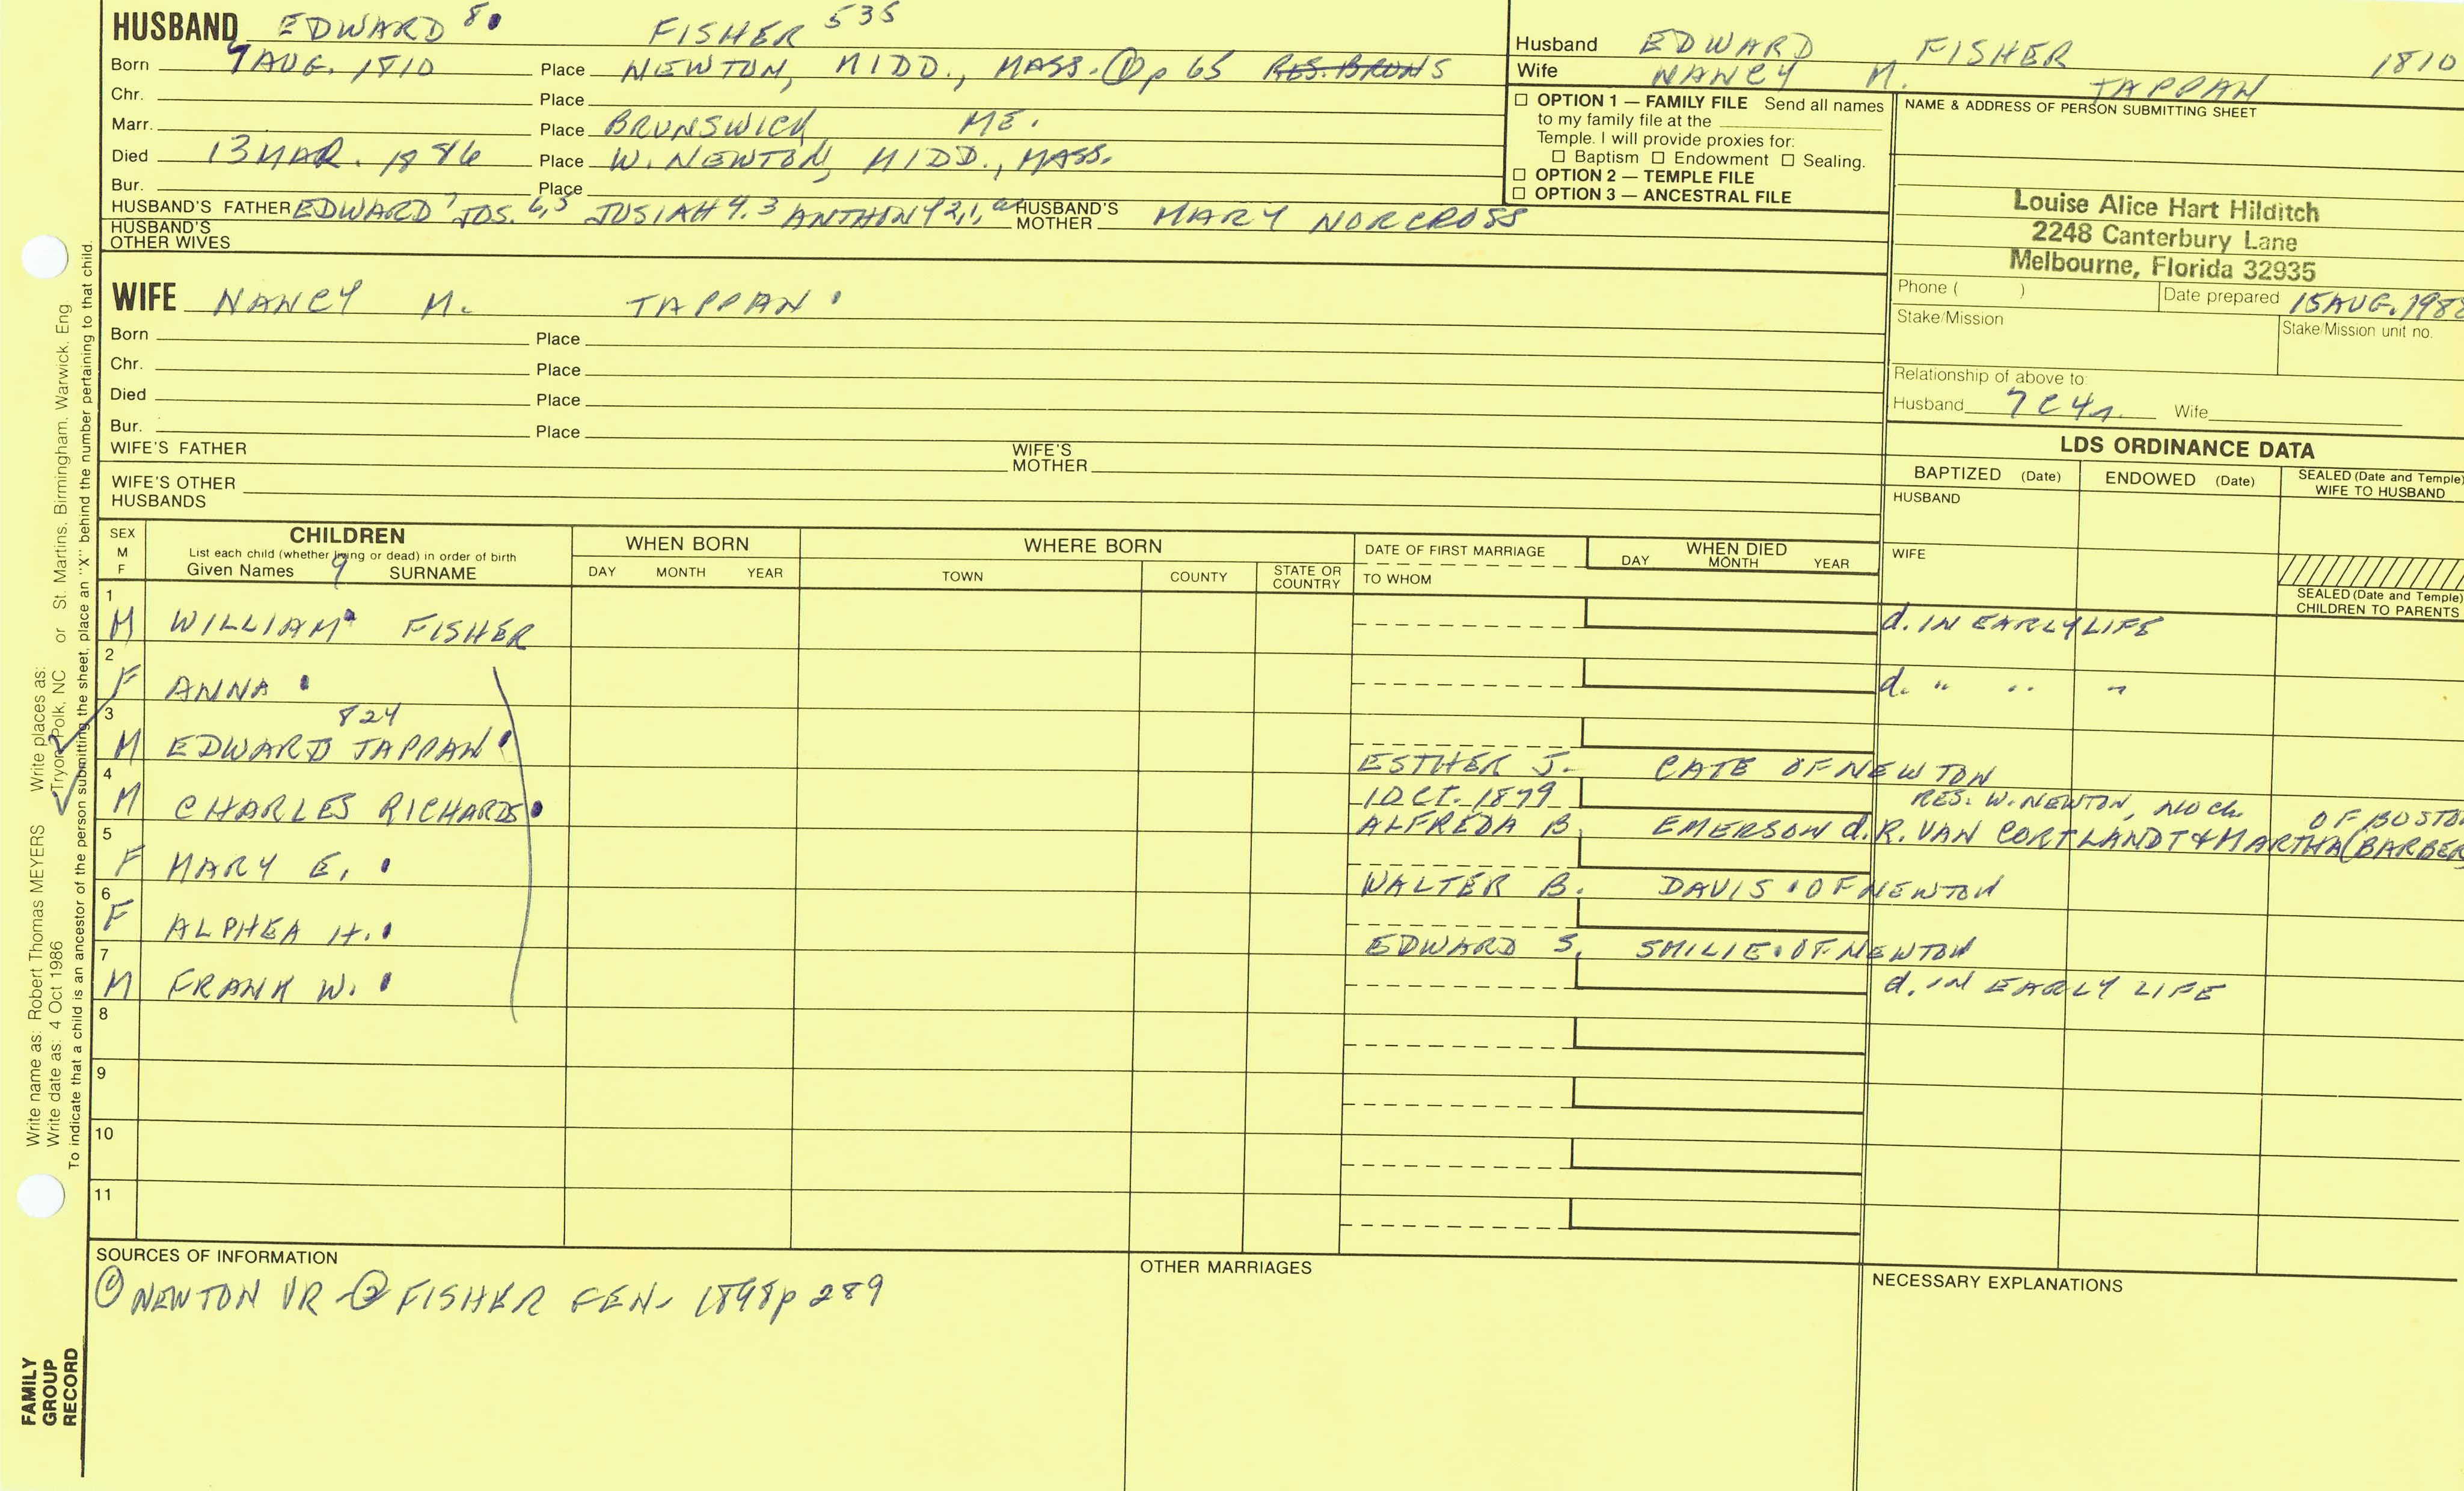 HUSBAND EDWARD 8 FISHER 535
Born 7 AUG. 1810 Place NEWTON, MIDD., MASS. ① p 65 RES. BRUNS
Chr. Place
Marr. Place BRUNSWICK ME.
Died 13 MAR. 1886 Place W. NEWTON, MIDD., MASS.
Bur. Place
HUSBAND'S FATHER EDWARD 7 JOS. 6,5 JOSIAH 4,3 ANTHONY 2,1, HUSBAND'S MOTHER MARY NORCROSS
HUSBAND'S OTHER WIVES
Husband EDWARD FISHER 1810
Wife NANCY M. TAPPAN
☐ OPTION 1 — FAMILY FILE Send all names
to my family file at the
Temple. I will provide proxies for:
☐ Baptism ☐ Endowment ☐ Sealing.
☐ OPTION 2 — TEMPLE FILE
☐ OPTION 3 — ANCESTRAL FILE
NAME & ADDRESS OF PERSON SUBMITTING SHEET
Louise Alice Hart Hilditch
2248 Canterbury Lane
Melbourne, Florida 32935
Phone ( ) Date prepared 15 AUG. 1988
Stake/Mission Stake/Mission unit no.
Relationship of above to:
Husband 7C4r Wife
WIFE NANCY M. TAPPAN
Born Place
Chr. Place
Died Place
Bur. Place
WIFE'S FATHER WIFE'S MOTHER
WIFE'S OTHER HUSBANDS
LDS ORDINANCE DATA
BAPTIZED (Date) ENDOWED (Date) SEALED (Date and Temple) WIFE TO HUSBAND
HUSBAND
WIFE
SEALED (Date and Temple) CHILDREN TO PARENTS
SEX M F
CHILDREN
List each child (whether living or dead) in order of birth
Given Names 9 SURNAME
WHEN BORN
DAY MONTH YEAR
WHERE BORN
TOWN COUNTY STATE OR COUNTRY
DATE OF FIRST MARRIAGE
TO WHOM
WHEN DIED
DAY MONTH YEAR
1 M WILLIAM FISHER d. IN EARLY LIFE
2 F ANNA d. " " "
824
3 M EDWARD TAPPAN
ESTHER J. CATE OF NEWTON
RES. W. NEWTON, NO CH.
4 M CHARLES RICHARDS 1 OCT. 1879
ALFREDA B. EMERSON d. R. VAN CORTLANDT & MARTHA (BARBER OF BOSTO
5 F MARY E.
WALTER B. DAVIS OF NEWTON
6 F ALPHEA H.
EDWARD S. SMILIE OF NEWTON
7 M FRANK W. d. IN EARLY LIFE
8
9
10
11
SOURCES OF INFORMATION
① NEWTON VR ② FISHER GEN. 1898 p 289
OTHER MARRIAGES
NECESSARY EXPLANATIONS
FAMILY GROUP RECORD
Write name as: Robert Thomas MEYERS Write places as:
Write date as: 4 Oct 1986 Tryon, Polk, NC or St. Martins, Birmingham, Warwick, Eng
To indicate that a child is an ancestor of the person submitting the sheet, place an "X" behind the number pertaining to that child.